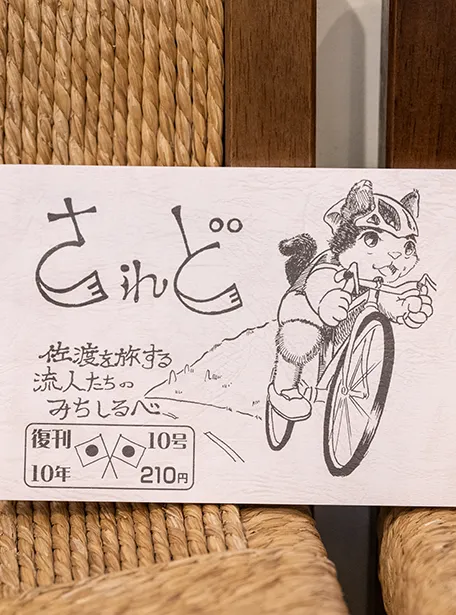 されど
佐渡を旅する
流人たちの
みちしるべ
復刊 10号
10年 210円